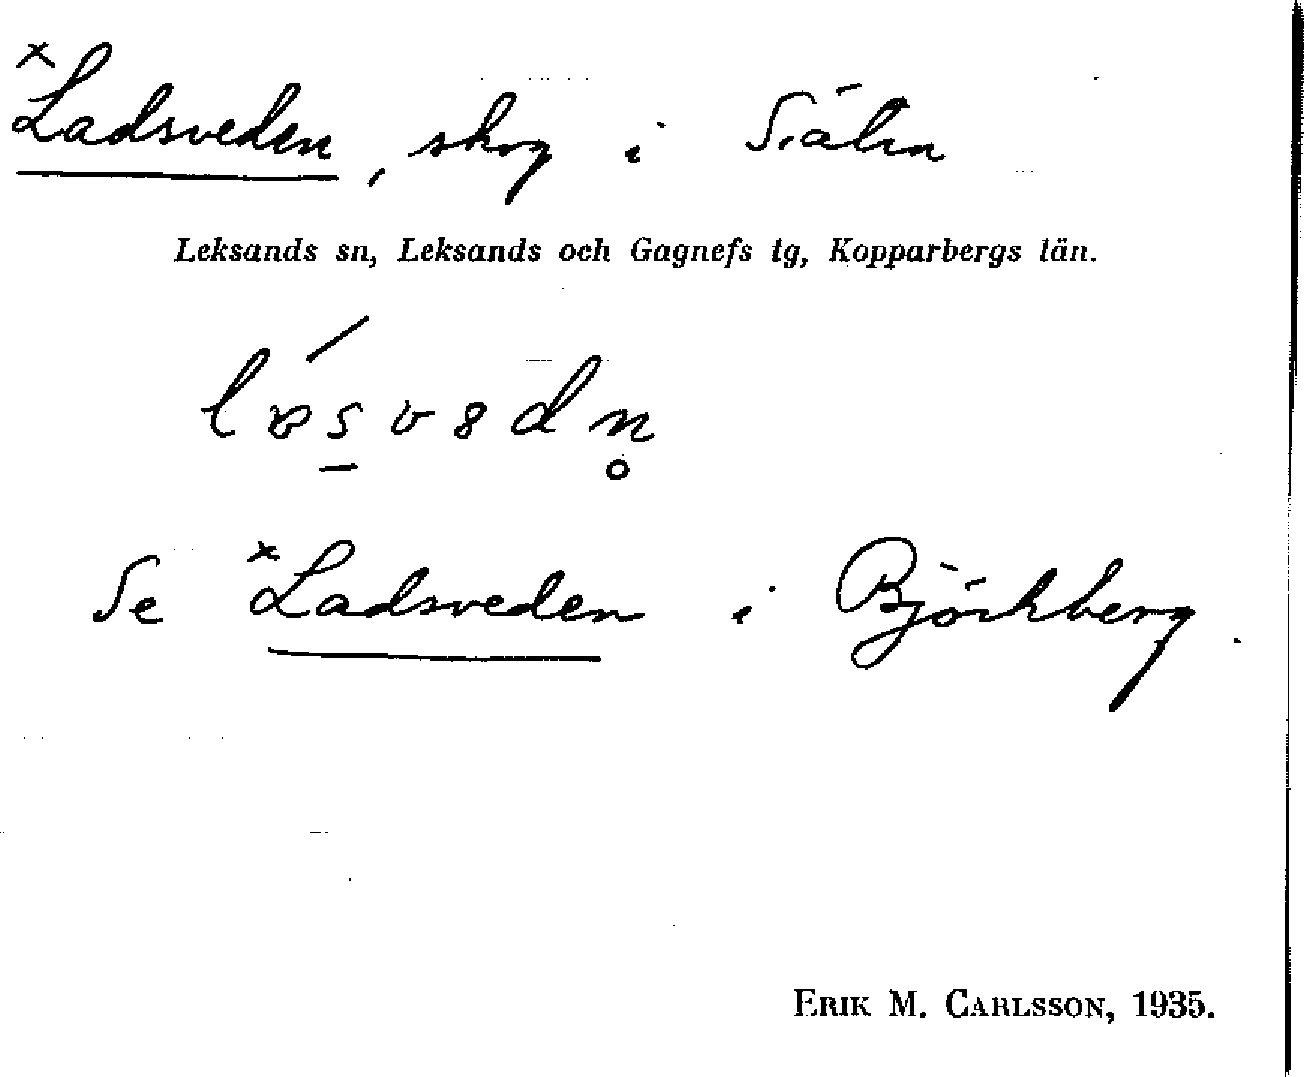 ×Ladsveden, skog i Siälin
Leksands sn, Leksands och Gagnefs tg, Kopparbergs län.
Se ×Ladsveden i Björkberg.
ERIK M. CARLSSON, 1935.